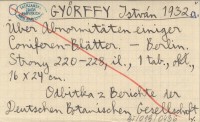 GYÖRFFY István 1932
Über Abnormitäten einiger
Coniferen-Blätter. – Berlin.
Strony 220–228, il., 1 tab., okł.,
16 x 24 cm.
Odbitka z Berichte der
Deutschen Botanischen Gesellschaft